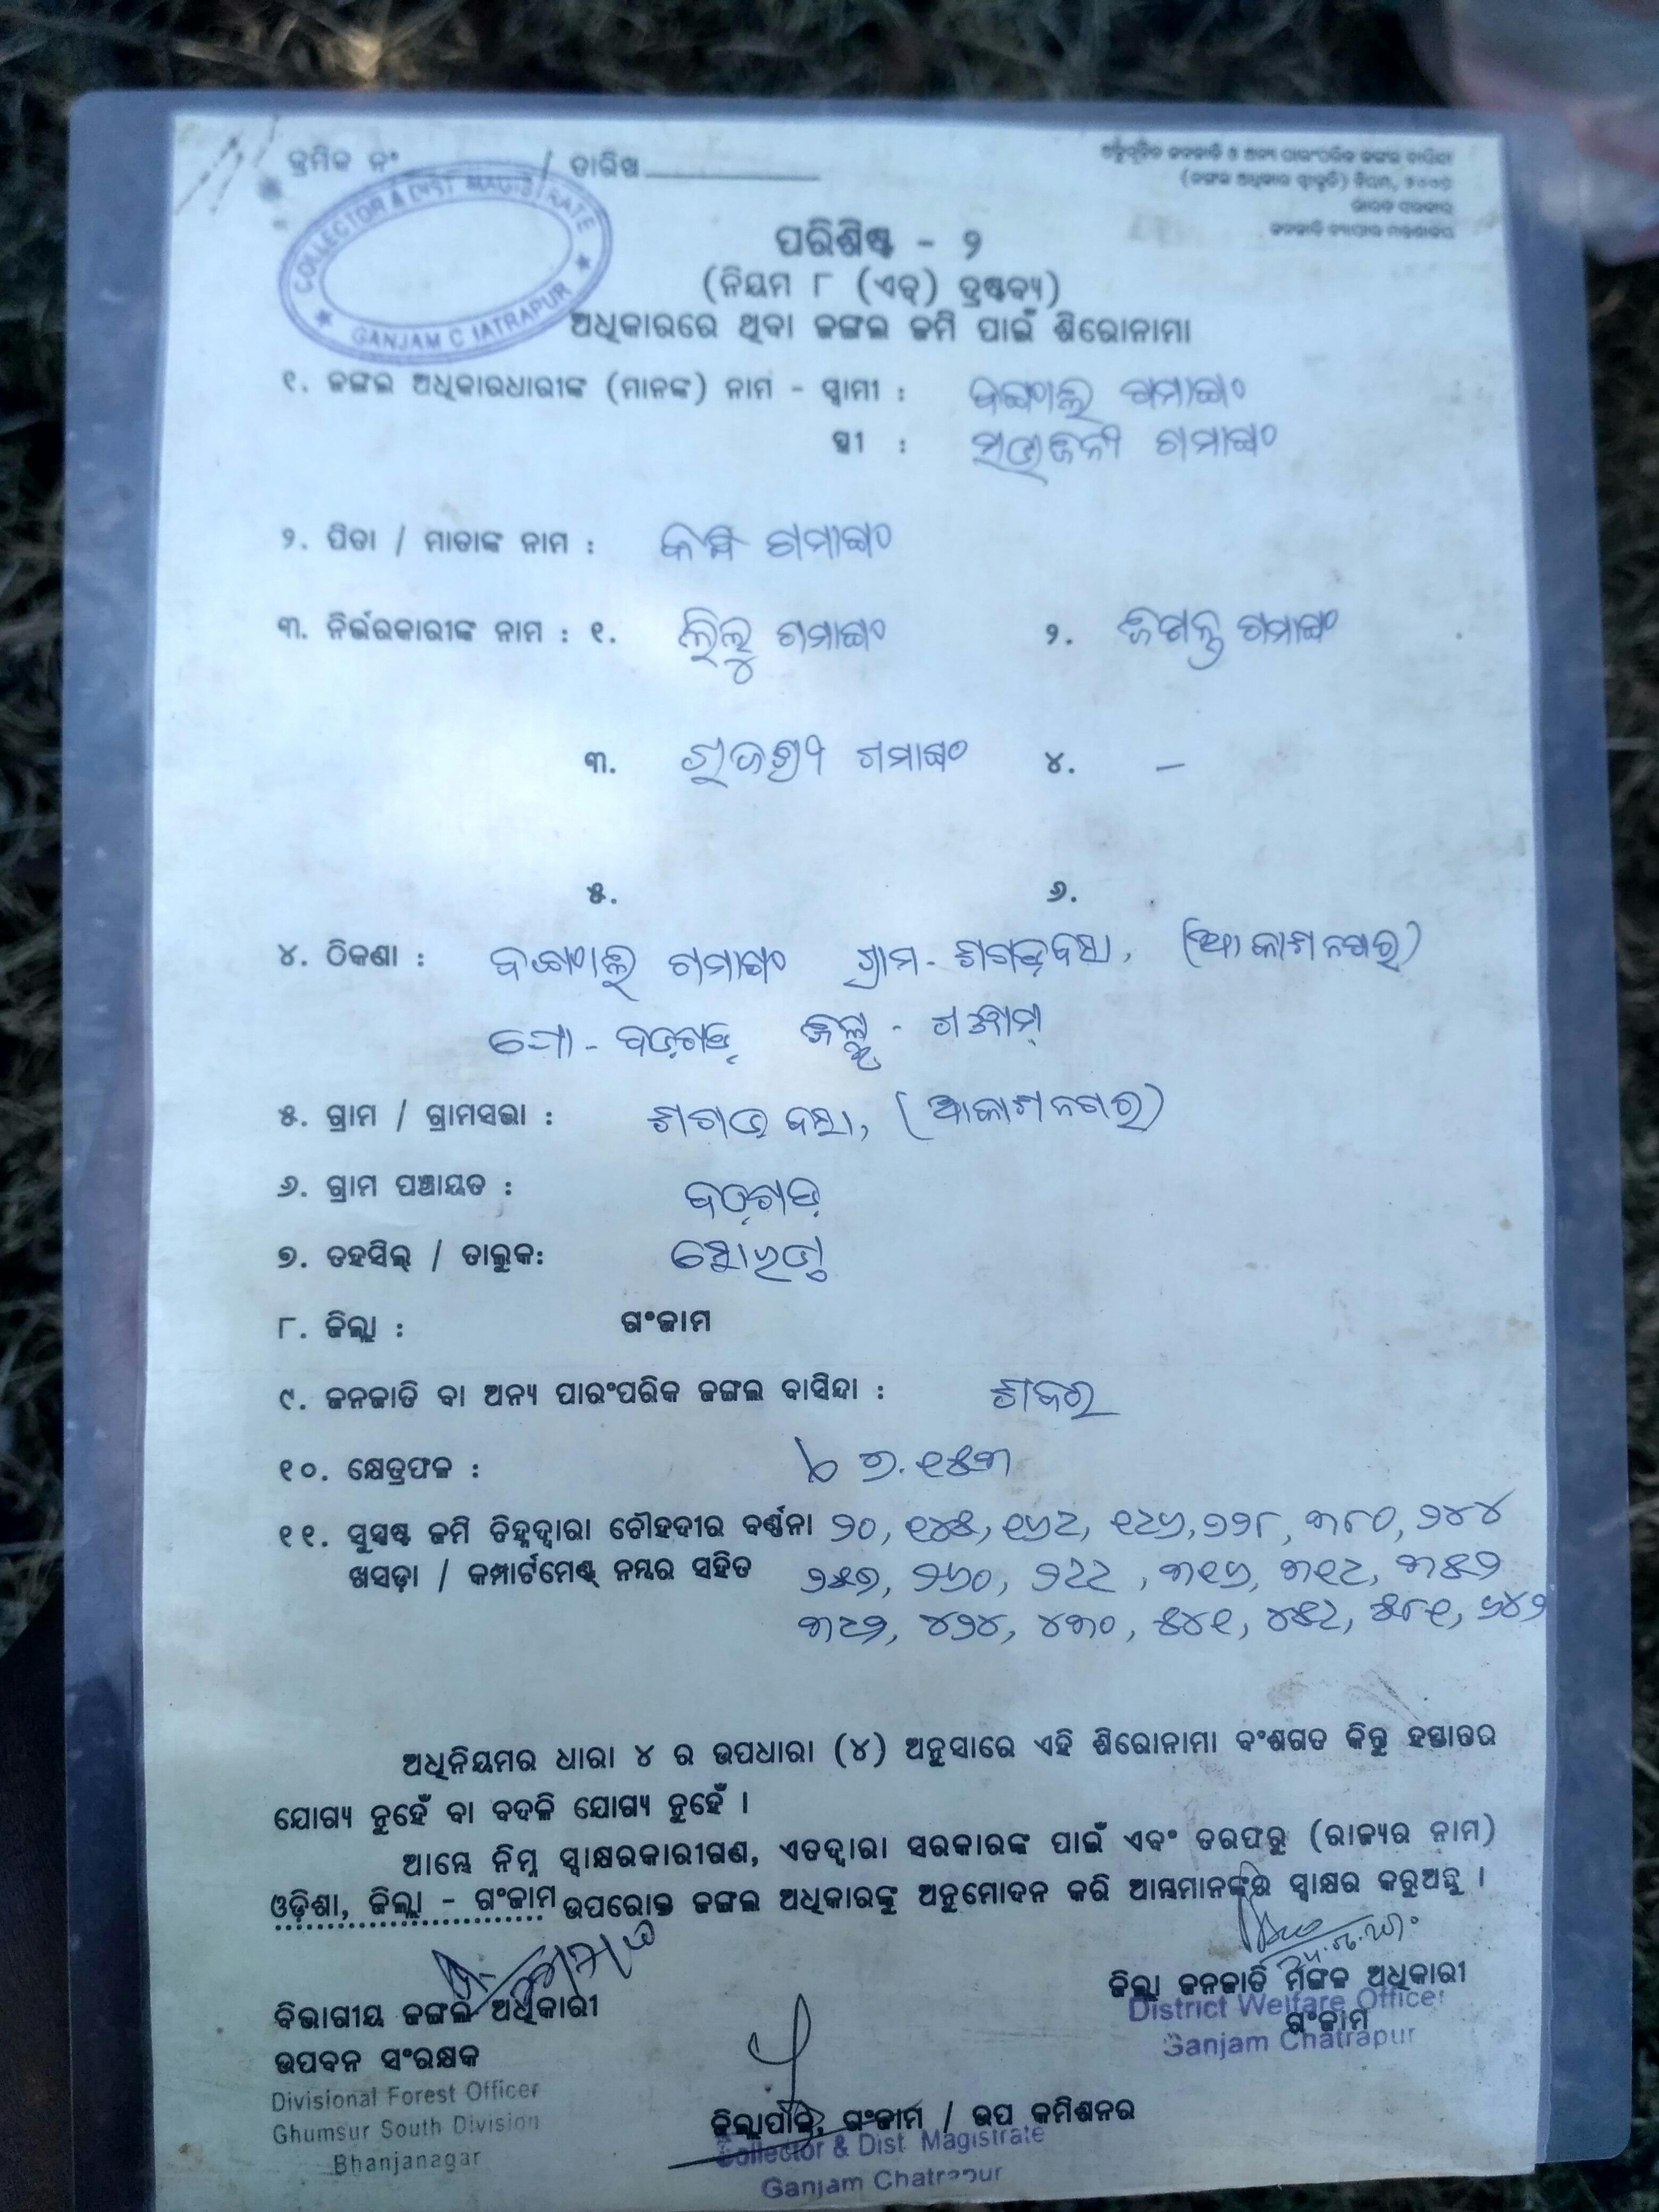 କ୍ରମିକ ନଂ / ତାରିଖ
ଅନୁସୂଚିତ ଜନଜାତି ଓ ଅନ୍ୟ ପାରଂପରିକ ଜଙ୍ଗଲ ବାସିନ୍ଦା
(ଜଙ୍ଗଲ ଅଧିକାର ସ୍ୱୀକୃତି) ନିୟମ,
ଭାରତ ସରକାର
ଜନଜାତି ବ୍ୟାପାର ମନ୍ତ୍ରଣାଳୟ
COLLECTOR & DIST MAGISTRATE
GANJAM C IATRAPUR
ପରିଶିଷ୍ଟ - ୨
(ନିୟମ ୮ (ଏଚ୍) ଦ୍ରଷ୍ଟବ୍ୟ)
ଅଧିକାରରେ ଥିବା ଜଙ୍ଗଲ ଜମି ପାଇଁ ଶିରୋନାମା
୧. ଜଙ୍ଗଲ ଅଧିକାରଧାରୀଙ୍କ (ମାନଙ୍କ) ନାମ - ସ୍ୱାମୀ : ଗମାଙ୍ଗ
ସ୍ତ୍ରୀ : ଗମାଙ୍ଗ
୨. ପିତା / ମାତାଙ୍କ ନାମ : ଗମାଙ୍ଗ
୩. ନିର୍ଭରକାରୀଙ୍କ ନାମ : ୧. ଲିଲୁ ଗମାଙ୍ଗ ୨. ଗମାଙ୍ଗ
୩. ଗମାଙ୍ଗ ୪. –
୫. ୬.
୪. ଠିକଣା : ଗମାଙ୍ଗ ଗ୍ରାମ - (ଆକାଶନଗର)
ପୋ - ବଡ଼ଗଡ଼ ଜିଲ୍ଲା - ଗଞ୍ଜାମ
୫. ଗ୍ରାମ / ଗ୍ରାମସଭା : (ଆକାଶନଗର)
୬. ଗ୍ରାମ ପଞ୍ଚାୟତ : ବଡ଼ଗଡ଼
୭. ତହସିଲ୍ / ତାଲୁକ: ସୋରଡ଼ା
୮. ଜିଲ୍ଲା : ଗଂଜାମ
୯. ଜନଜାତି ବା ଅନ୍ୟ ପାରଂପରିକ ଜଙ୍ଗଲ ବାସିନ୍ଦା : ଶବର
୧୦. କ୍ଷେତ୍ରଫଳ : ୧୫୩
୧୧. ସୁସ୍ପଷ୍ଟ ଜମି ଚିହ୍ନଦ୍ୱାରା ଚୌହଦୀର ବର୍ଣ୍ଣନା ୨୦, ୧୪୫, ୧୬୯, ୧୯୬, ୨୨୮, ୩୮୦, ୨୪୪
ଖସଡ଼ା / କମ୍ପାର୍ଟମେଣ୍ଟ୍ ନମ୍ବର ସହିତ ୨୫୭, ୨୬୦, ୨୯୯, ୩୧୬, ୩୧୯, ୩୫୨
୩୯୨, ୪୨୪, ୪୩୦, ୫୪୧, ୪୫୯, ୫୮୧, ୬୪୨
ଅଧିନିୟମର ଧାରା ୪ ର ଉପଧାରା (୪) ଅନୁସାରେ ଏହି ଶିରୋନାମା ବଂଶଗତ କିନ୍ତୁ ହସ୍ତାନ୍ତର
ଯୋଗ୍ୟ ନୁହେଁ ବା ବଦଳି ଯୋଗ୍ୟ ନୁହେଁ ।
ଆମ୍ଭେ ନିମ୍ନ ସ୍ୱାକ୍ଷରକାରୀଗଣ, ଏତଦ୍ୱାରା ସରକାରଙ୍କ ପାଇଁ ଏବଂ ତରଫରୁ (ରାଜ୍ୟର ନାମ)
ଓଡ଼ିଶା, ଜିଲ୍ଲା - ଗଂଜାମ ଉପରୋକ୍ତ ଜଙ୍ଗଲ ଅଧିକାରଙ୍କୁ ଅନୁମୋଦନ କରି ଆମ୍ଭମାନଙ୍କର ସ୍ୱାକ୍ଷର କରୁଅଛୁ ।
ବିଭାଗୀୟ ଜଙ୍ଗଲ ଅଧିକାରୀ
ଉପବନ ସଂରକ୍ଷକ
Divisional Forest Officer
Ghumsur South Division
Bhanjanagar
ଜିଲ୍ଲା ଜନଜାତି ମଙ୍ଗଳ ଅଧିକାରୀ
ଗଂଜାମ
District Welfare Officer
Ganjam Chatrapur
ଜିଲ୍ଲାପାଳ, ଗଂଜାମ / ଉପ କମିଶନର
Collector & Dist. Magistrate
Ganjam Chatrapur